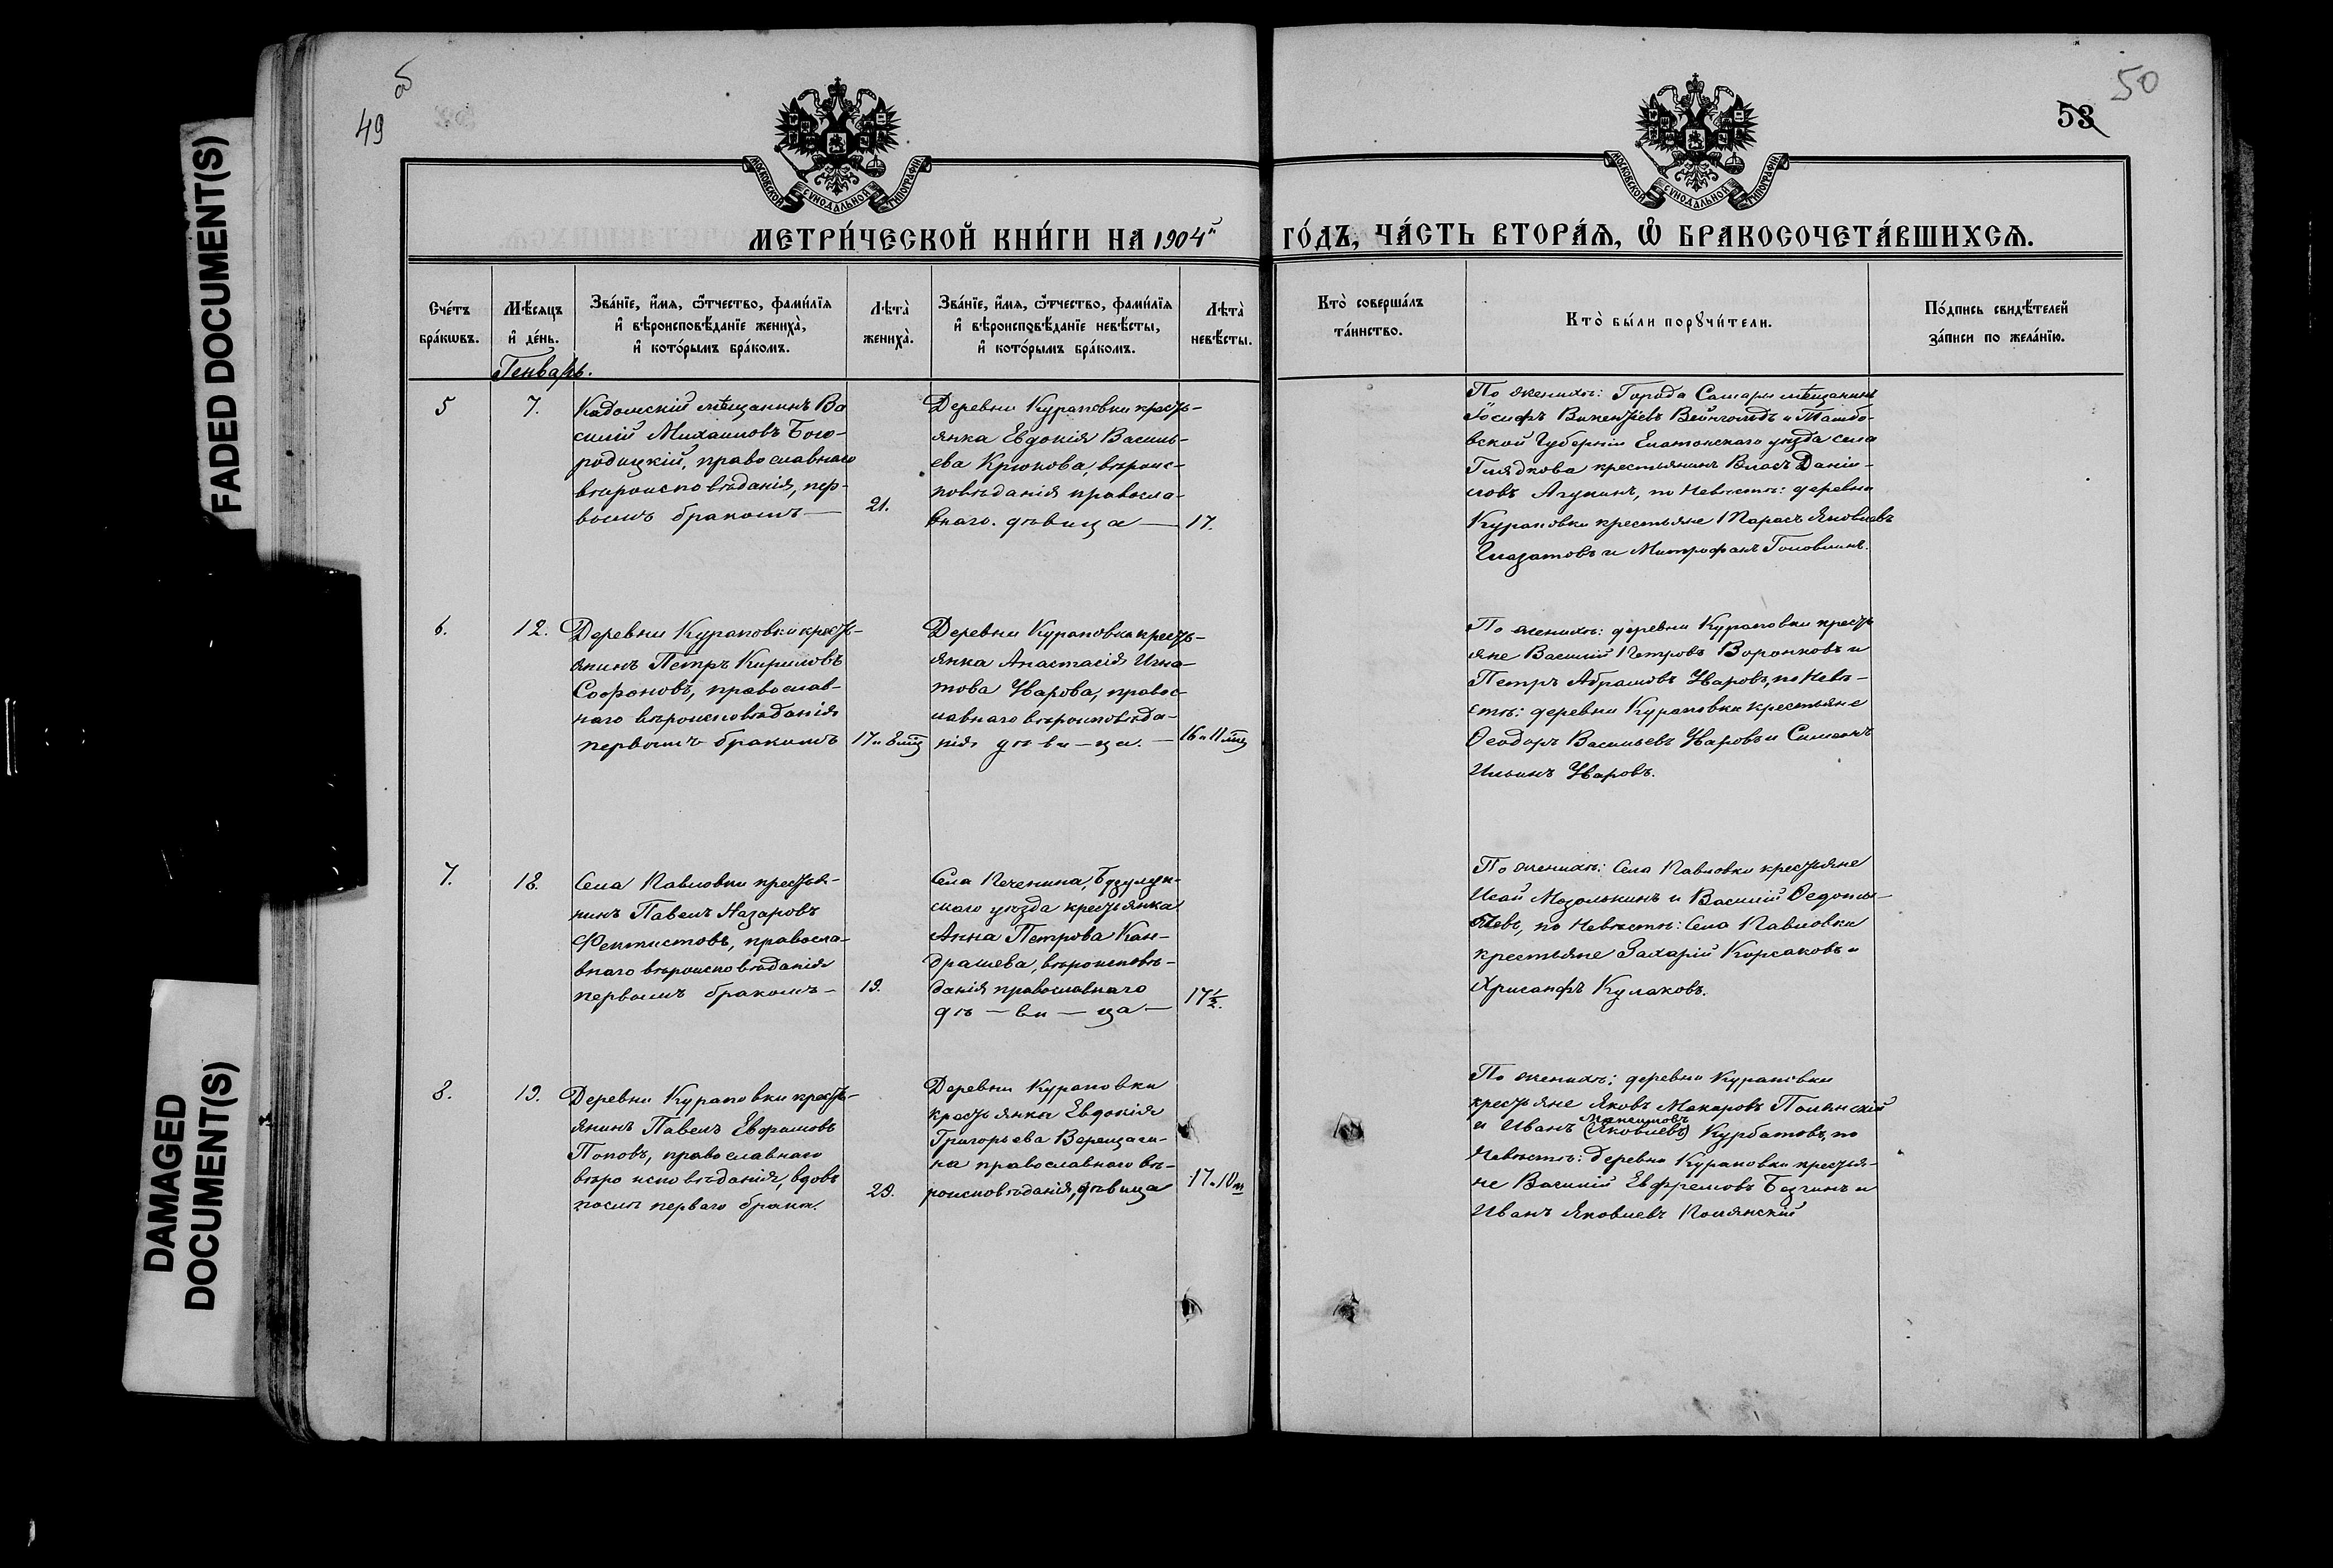 FADED DOCUMENT(S)
DAMAGED
DOCUMENT(S)
49
50
53
МОСКОВСКОЙ СѴНОДАЛЬНОЙ ТИПОГРАФІИ
МОСКОВСКОЙ СѴНОДАЛЬНОЙ ТИПОГРАФІИ
МЕТРИ́ЧЕСКОЙ КНИ́ГИ НА 1904й ГО́ДЪ, ЧА́СТЬ ВТОРА́Ѧ, Ѽ БРАКОСОЧЕТА́ВШИХСѦ.
Сче́тъ
бра́кѡвъ.
Мѣ́сяцъ
и҆ де́нь.
Зва́нїе, и҆́мя, ѻ҆́тчество, фами́лїя
и҆ вѣроисповѣ́данїе жениха̀,
и҆ кото́рымъ бра́комъ.
Лѣта̀
жениха̀.
Зва́нїе, и҆́мя, ѻ҆́тчество, фами́лїя
и҆ вѣроисповѣ́данїе невѣ́сты,
и҆ кото́рымъ бра́комъ.
Лѣта̀
невѣ́сты.
Кто̀ соверша́лъ
та́инство.
Кто̀ бы́ли порꙋчи́тели.
По́дпись свидѣ́телей
за́писи по жела́нїю.
Генварь.
5
7.
Кадомскій мѣщанинъ Ва
силій Михаиловъ Бого-
родицкій, православнаго
вѣроисповѣданія, пер-
вымъ бракомъ —
21.
Деревни Кураповки кресть-
янка Евдокія Василь-
ева Крюкова, вѣроис-
повѣданія правосла-
внаго. дѣвица —
17.
По женихѣ: Города Самары мѣщанинъ
Іосифъ Викентьевъ Вейнгольдъ и Тамбо-
вской Губерніи Елатомскаго уѣзда села
Глядкова крестьянинъ Власъ Даніи-
ловъ Агукинъ, по Невѣстѣ: деревни
Кураповки крестьяне Тарасъ Яковлевъ
Глазатовъ и Митрофанъ Головлинъ.
6.
12.
Деревни Кураповки кресть-
янинъ Петръ Кириловъ
Софоновъ, православ-
наго вѣроисповѣданія
первымъ бракомъ
17 и 8 мц
Деревни Кураповки кресть-
янка Анастасія Игна-
това Уварова, правос-
лавнаго вѣроисповѣда-
нія дѣ-ви-ца. —
16 и 11 мц
По женихѣ: деревни Кураповки кресть
яне Василій Петровъ Воронковъ и
Петръ Абрамовъ Уваровъ, по Невѣ-
стѣ: деревни Кураповки крестьяне
Ѳеодоръ Васильевъ Уваровъ и Симеонъ
Ильинъ Уваровъ.
7.
18.
Села Павловки крестья-
нинъ Павелъ Назаровъ
Фектистовъ, правосла-
внаго вѣроисповѣданія
первымъ бракомъ —
19.
Села Печенина, Бузулук-
скаго уѣзда крестьянка
Анна Петрова Кан-
драшева, вѣроисповѣ-
данія православнаго
дѣ — ви — ца —
17 ½.
По женихѣ: Села Павловки крестьяне
Исай Мозолькинъ и Василій Ѳедоть-
евъ, по Невѣстѣ: Села Павловки
крестьяне Захарій Корсаковъ и
Хрисанфъ Кулаковъ.
8.
19.
Деревни Кураповки кресть-
янинъ Павелъ Ефрамовъ
Поповъ, православнаго
вѣроисповѣданія, вдовъ
послѣ перваго брака.
29.
Деревни Кураповки
крестьянка Евдокія
Григорьева Верещаги-
на православнаго вѣ-
роисповѣданія, дѣвица
17 и 10 м
По женихѣ: деревни Кураповки
крестьяне Яковъ Макаровъ Полянскій
Максимовъ
и Иванъ (Яковлевъ) Курбатовъ, по
Невѣстѣ: деревни Кураповки крестья-
не Василій Евфремовъ Безгинъ и
Иванъ Яковлевъ Полянскій